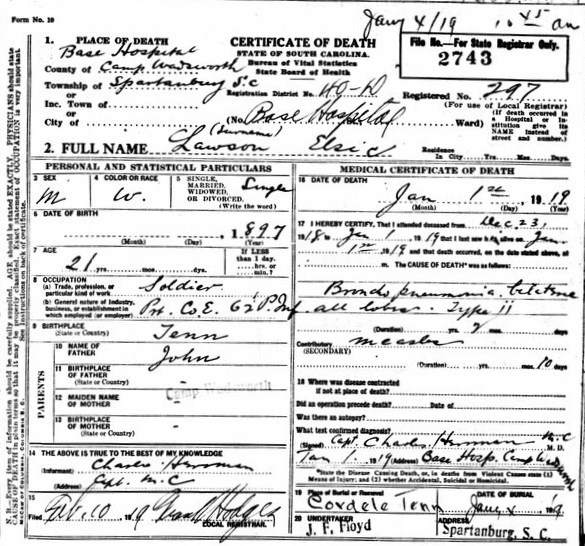 Form No. 10
Jany 4/19 10 45 am
1. PLACE OF DEATH
Base Hospital
County of Camp Wadsworth
Township of Spartanburg S.C
or
Inc. Town of
or
City of
CERTIFICATE OF DEATH
STATE OF SOUTH CAROLINA
Bureau of Vital Statistics
State Board of Health
Registration District No. 40-D
(No. Base Hospital Ward)
File No.—For State Registrar Only.
2743
Registered No. 297
(For use of Local Registrar)
(If death occurred in a Hospital or Institution give its NAME instead of street and number.)
(Surname)
2. FULL NAME Lawson Elsie
Residence
In City Yrs. Mos. Days.
PERSONAL AND STATISTICAL PARTICULARS
3 SEX
M
4 COLOR OR RACE
W.
5 SINGLE, MARRIED, WIDOWED, OR DIVORCED.
(Write the word)
Single
6 DATE OF BIRTH
1897
(Month) (Day) (Year)
7 AGE
21 yrs. mos. ds.
If LESS than 1 day.
hrs. or min.
8 OCCUPATION
(a) Trade, profession, or particular kind of work
Soldier
(b) General nature of industry, business, or establishment in which employed (or employer)
Pvt. Co E. 62 P. Inf
9 BIRTHPLACE
(State or Country)
Tenn
PARENTS
10 NAME OF FATHER
John
11 BIRTHPLACE OF FATHER
(State or Country)
Camp Wadsworth
12 MAIDEN NAME OF MOTHER
13 BIRTHPLACE OF MOTHER
(State or Country)
14 THE ABOVE IS TRUE TO THE BEST OF MY KNOWLEDGE
(Informant) Charles Herrman
Capt. M.C
15
Filed Feb. 10 19
LOCAL REGISTRAR.
MEDICAL CERTIFICATE OF DEATH
16 DATE OF DEATH
Jan 1st 1919
(Month) (Day) (Year)
17 I HEREBY CERTIFY, That I attended deceased from Dec 23,
1918 to Jan 1 1919 that I last saw h alive on Jan
1st 1919 and that death occurred, on the date stated above, at
m. The CAUSE OF DEATH* was as follows:
Broncho pneumonia
all lobes. Type II
(Duration) yrs. mos. ds.
Contributory measles
(SECONDARY)
(Duration) yrs. mos. 10 days
18 Where was disease contracted
if not at place of death?
Did an operation precede death? Date of
Was there an autopsy?
What test confirmed diagnosis?
(Signed) Capt. Charles Herrman M C M. D.
Jan 1, 1919 (Address) Base Hosp. Camp Wadsworth
*State the Disease Causing Death, or, in deaths from Violent Causes state (1) Means of Injury; and (2) whether Accidental, Suicidal or Homicidal.
19 Place of Burial or Removal
Cordele Tenn
DATE OF BURIAL
Jany 19
20 UNDERTAKER
J. F. Floyd
ADDRESS
Spartanburg, S. C.